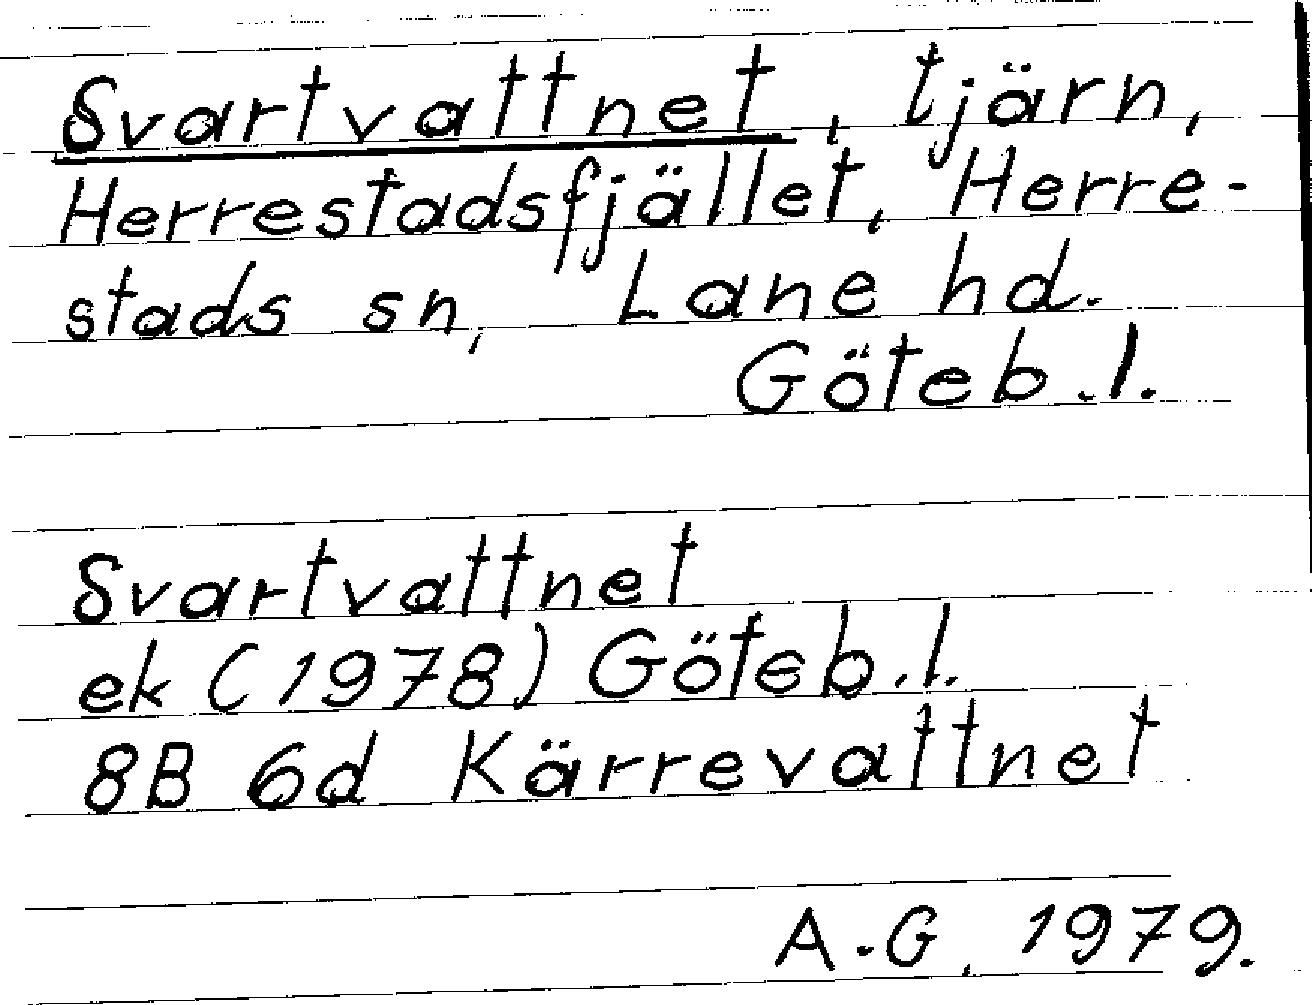 Svartvattnet, tjärn,
Herrestadsfjället, Herre-
stads sn, Lane hd.
Göteb.l.
Svartvattnet
ek (1978) Göteb.l.
8B 6d Kärrevattnet
A.G. 1979.